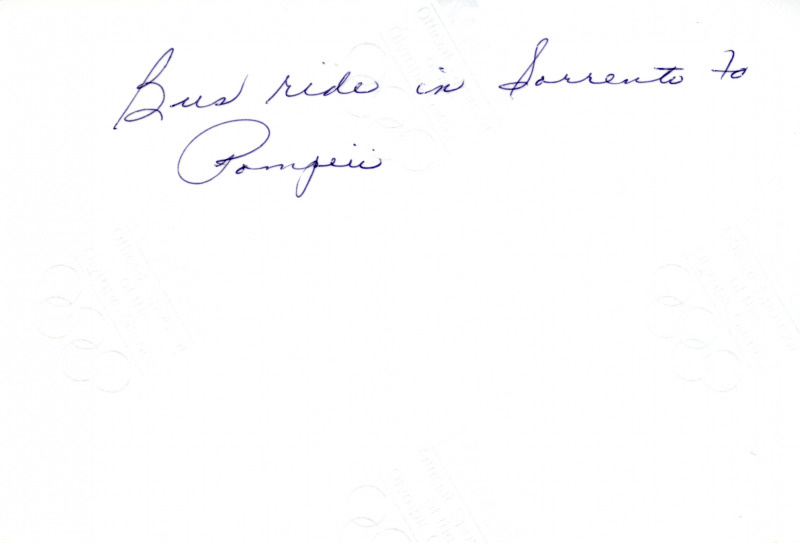 Bus ride in Sorrento to
Pompeii